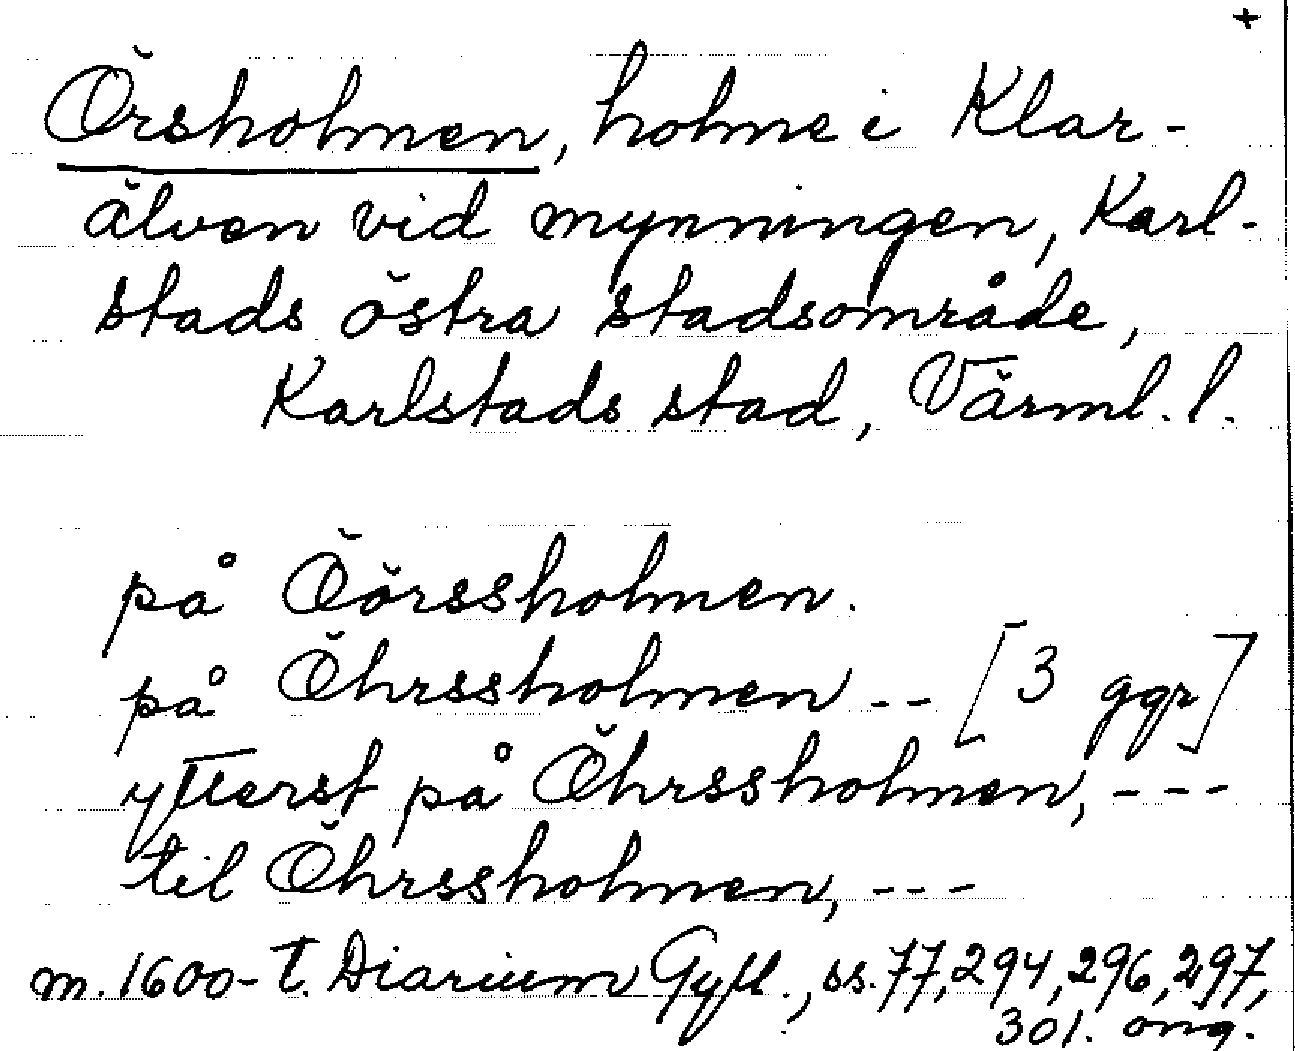 +
Örsholmen, holme i Klar-
älven vid mynningen, Karl-
stads östra stadsområde,
Karlstads stad, Värml. l.
på Öörssholmen.
på Öhrssholmen -- [3 ggr]
ytterst på Öhrssholmen, ---
til Öhrssholmen, ---
m. 1600-t. Diarium Gyll., ss. 77, 294, 296, 297,
301. omg.